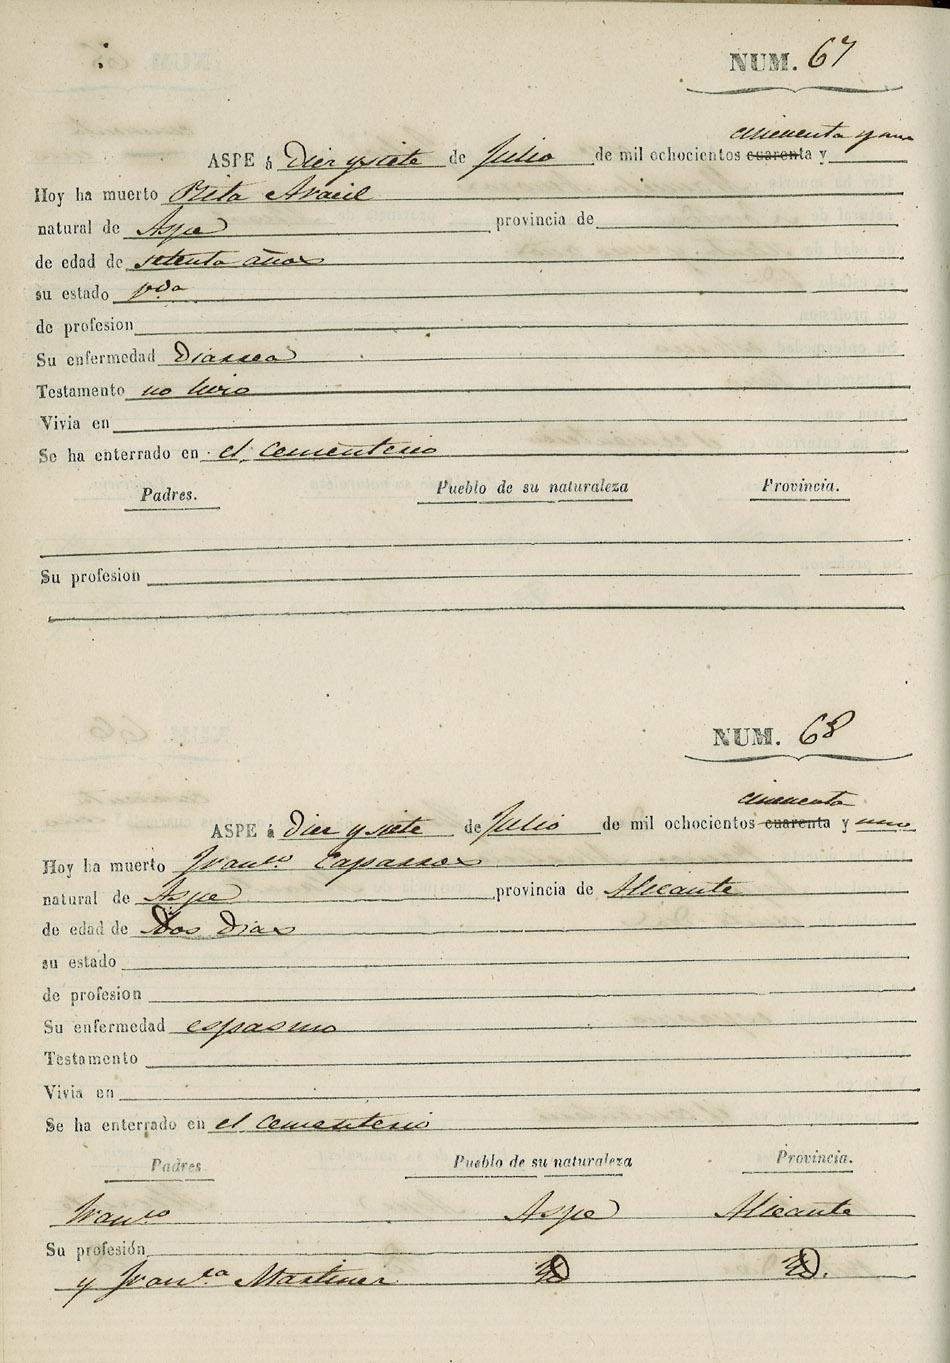 NUM. 67
cincuenta y uno
ASPE á Diez y siete de Julio de mil ochocientos cuarenta y
Hoy ha muerto Rita Aracil
natural de Aspe provincia de
de edad de setenta años
su estado vda
de profesion
Su enfermedad Diarrea
Testamento no hizo
Vivia en
Se ha enterrado en el Cementerio
Padres. Pueblo de su naturaleza Provincia.
Su profesion
NUM. 68
cincuenta
ASPE á Diez y siete de Julio de mil ochocientos cuarenta y uno
Hoy ha muerto Franco Caparros
natural de Aspe provincia de Alicante
de edad de Dos Dias
su estado
de profesion
Su enfermedad espasmo
Testamento
Vivia en
Se ha enterrado en el Cementerio
Padres Pueblo de su naturaleza Provincia.
Franco Aspe Alicante
Su profesión
y Franca Martinez